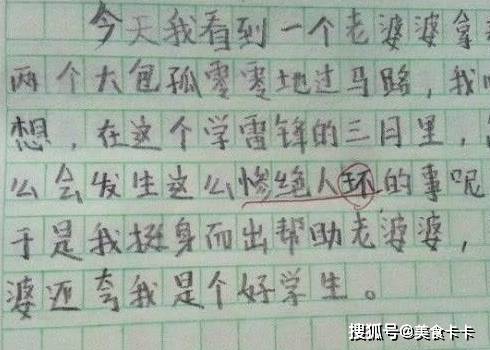 今天我看到一个老婆婆拿
两个大包孤零零地过马路，我
想，在这个学雷锋的三月里，
么会发生这么惨绝人环的事呢
于是我挺身而出帮助老婆婆，
婆还夸我是个好学生。
搜狐号@美食卡卡